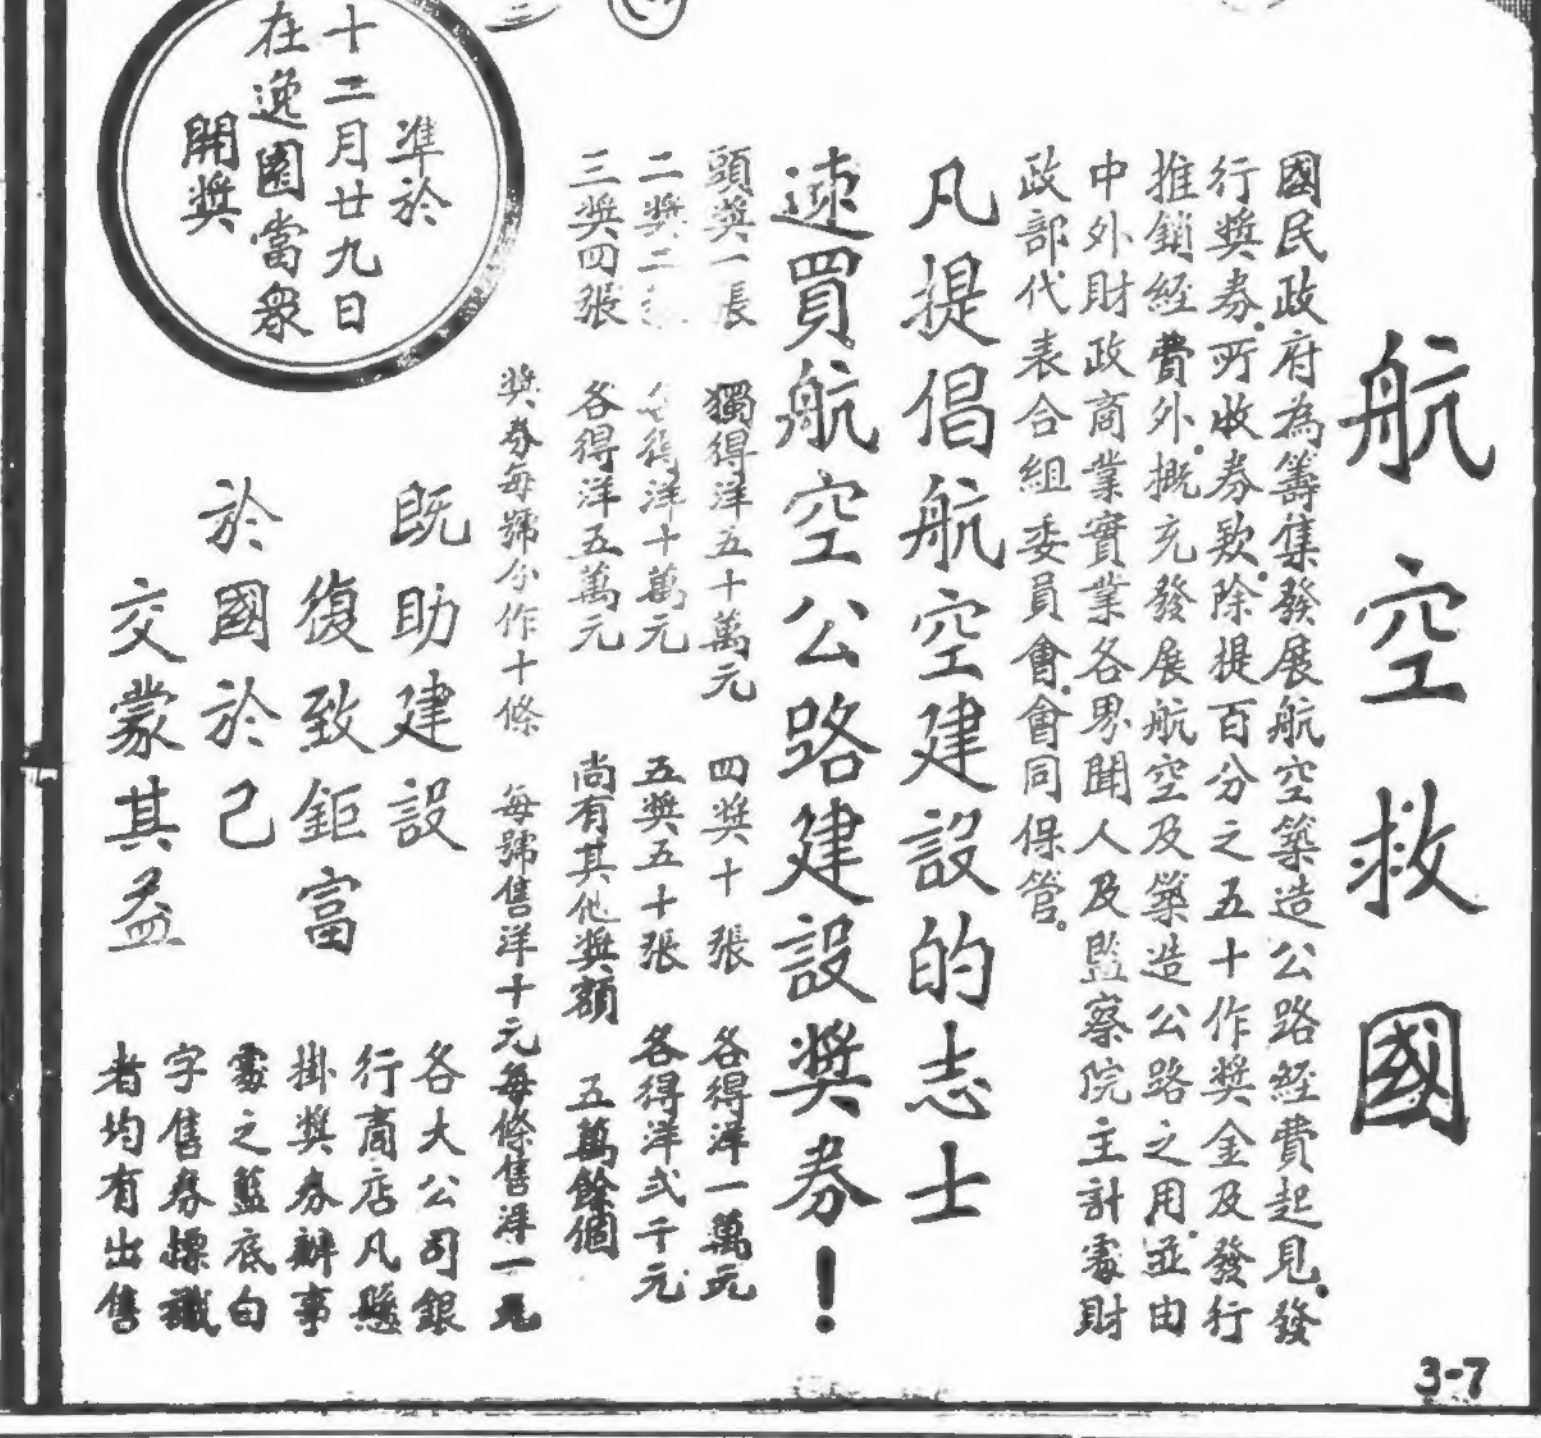 航空救國
國民政府為籌集發展航空築造公路經費起見。發
行獎券。所收券欵。除提百分之五十作獎金及發行
推銷經費外。概充發展航空及築造公路之用。並由
中外財政商業實業各界聞人及監察院主計處財
政部代表合組委員會。會同保管。
凡提倡航空建設的志士
速買航空公路建設獎券!
頭獎一張 獨得洋五十萬元 四獎十張 各得洋一萬元
二獎二 各得洋十萬元 五獎五十張 各得洋弍千元
三獎四張 各得洋五萬元 尚有其他獎額 五萬餘個
獎券每號分作十條 每號售洋十元每條售洋一元
準於
十二月廿九日
在逸園當衆
開獎
既助建設
復致鉅富
於國於己
交蒙其益
各大公司銀
行商店凡懸
掛獎券辦事
處之藍底白
字售券標幟
者均有出售
3-7